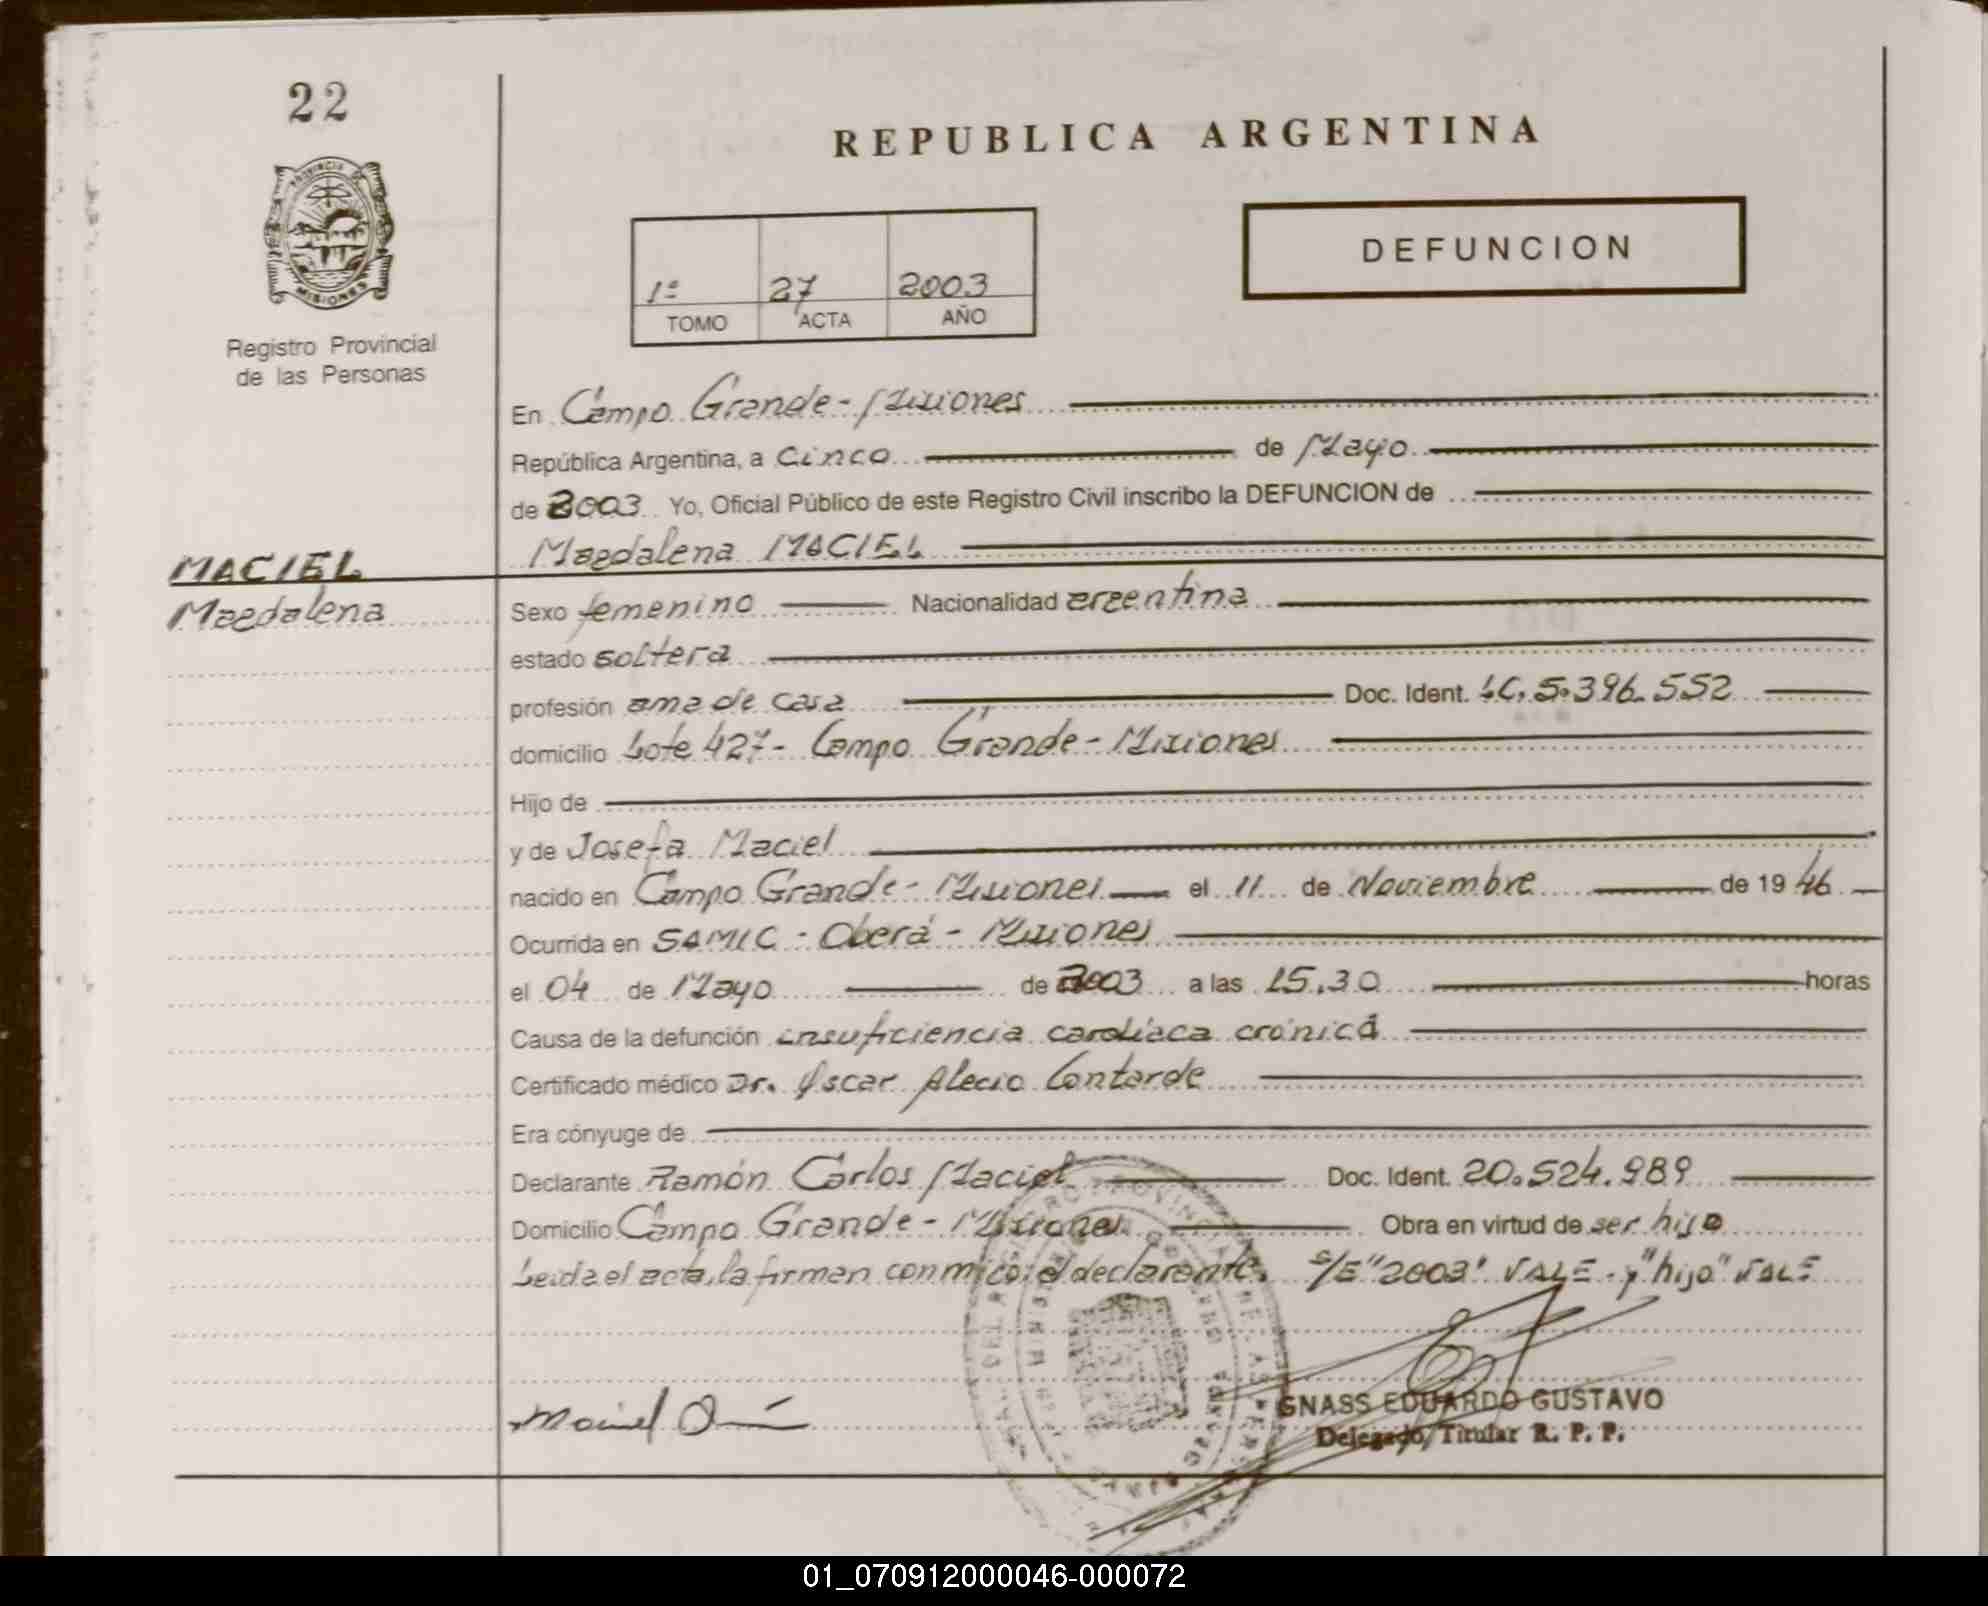 22
REPUBLICA ARGENTINA
PROVINCIA DE
MISIONES
Registro Provincial
de las Personas
1º 27 2003
TOMO ACTA AÑO
DEFUNCION
En Campo Grande - Misiones
República Argentina, a Cinco de Mayo
de 2003 Yo, Oficial Público de este Registro Civil inscribo la DEFUNCION de
MACIEL
Magdalena MACIEL
Magdalena
Sexo femenino Nacionalidad argentina
estado soltera
profesión ama de casa Doc. Ident. LC. 5.396.552
domicilio Lote 427 - Campo Grande - Misiones
Hijo de
y de Josefa Maciel
nacido en Campo Grande - Misiones el 11 de Noviembre de 19 46
Ocurrida en SAMIC - Oberá - Misiones
el 04 de Mayo de 2003 a las 15.30 horas
Causa de la defunción insuficiencia cardíaca crónica
Certificado médico Dr. Oscar Alecio Contarde
Era cónyuge de
Declarante Ramón Carlos Maciel Doc. Ident. 20.524.989
Domicilio Campo Grande - Misiones Obra en virtud de ser hijo
Leida el acta, la firman conmigo: el declarante. S/E "2003" VALE. y "hijo" VALE
Maciel
GNASS EDUARDO GUSTAVO
Delegado Titular R. P. P.
01_070912000046-000072